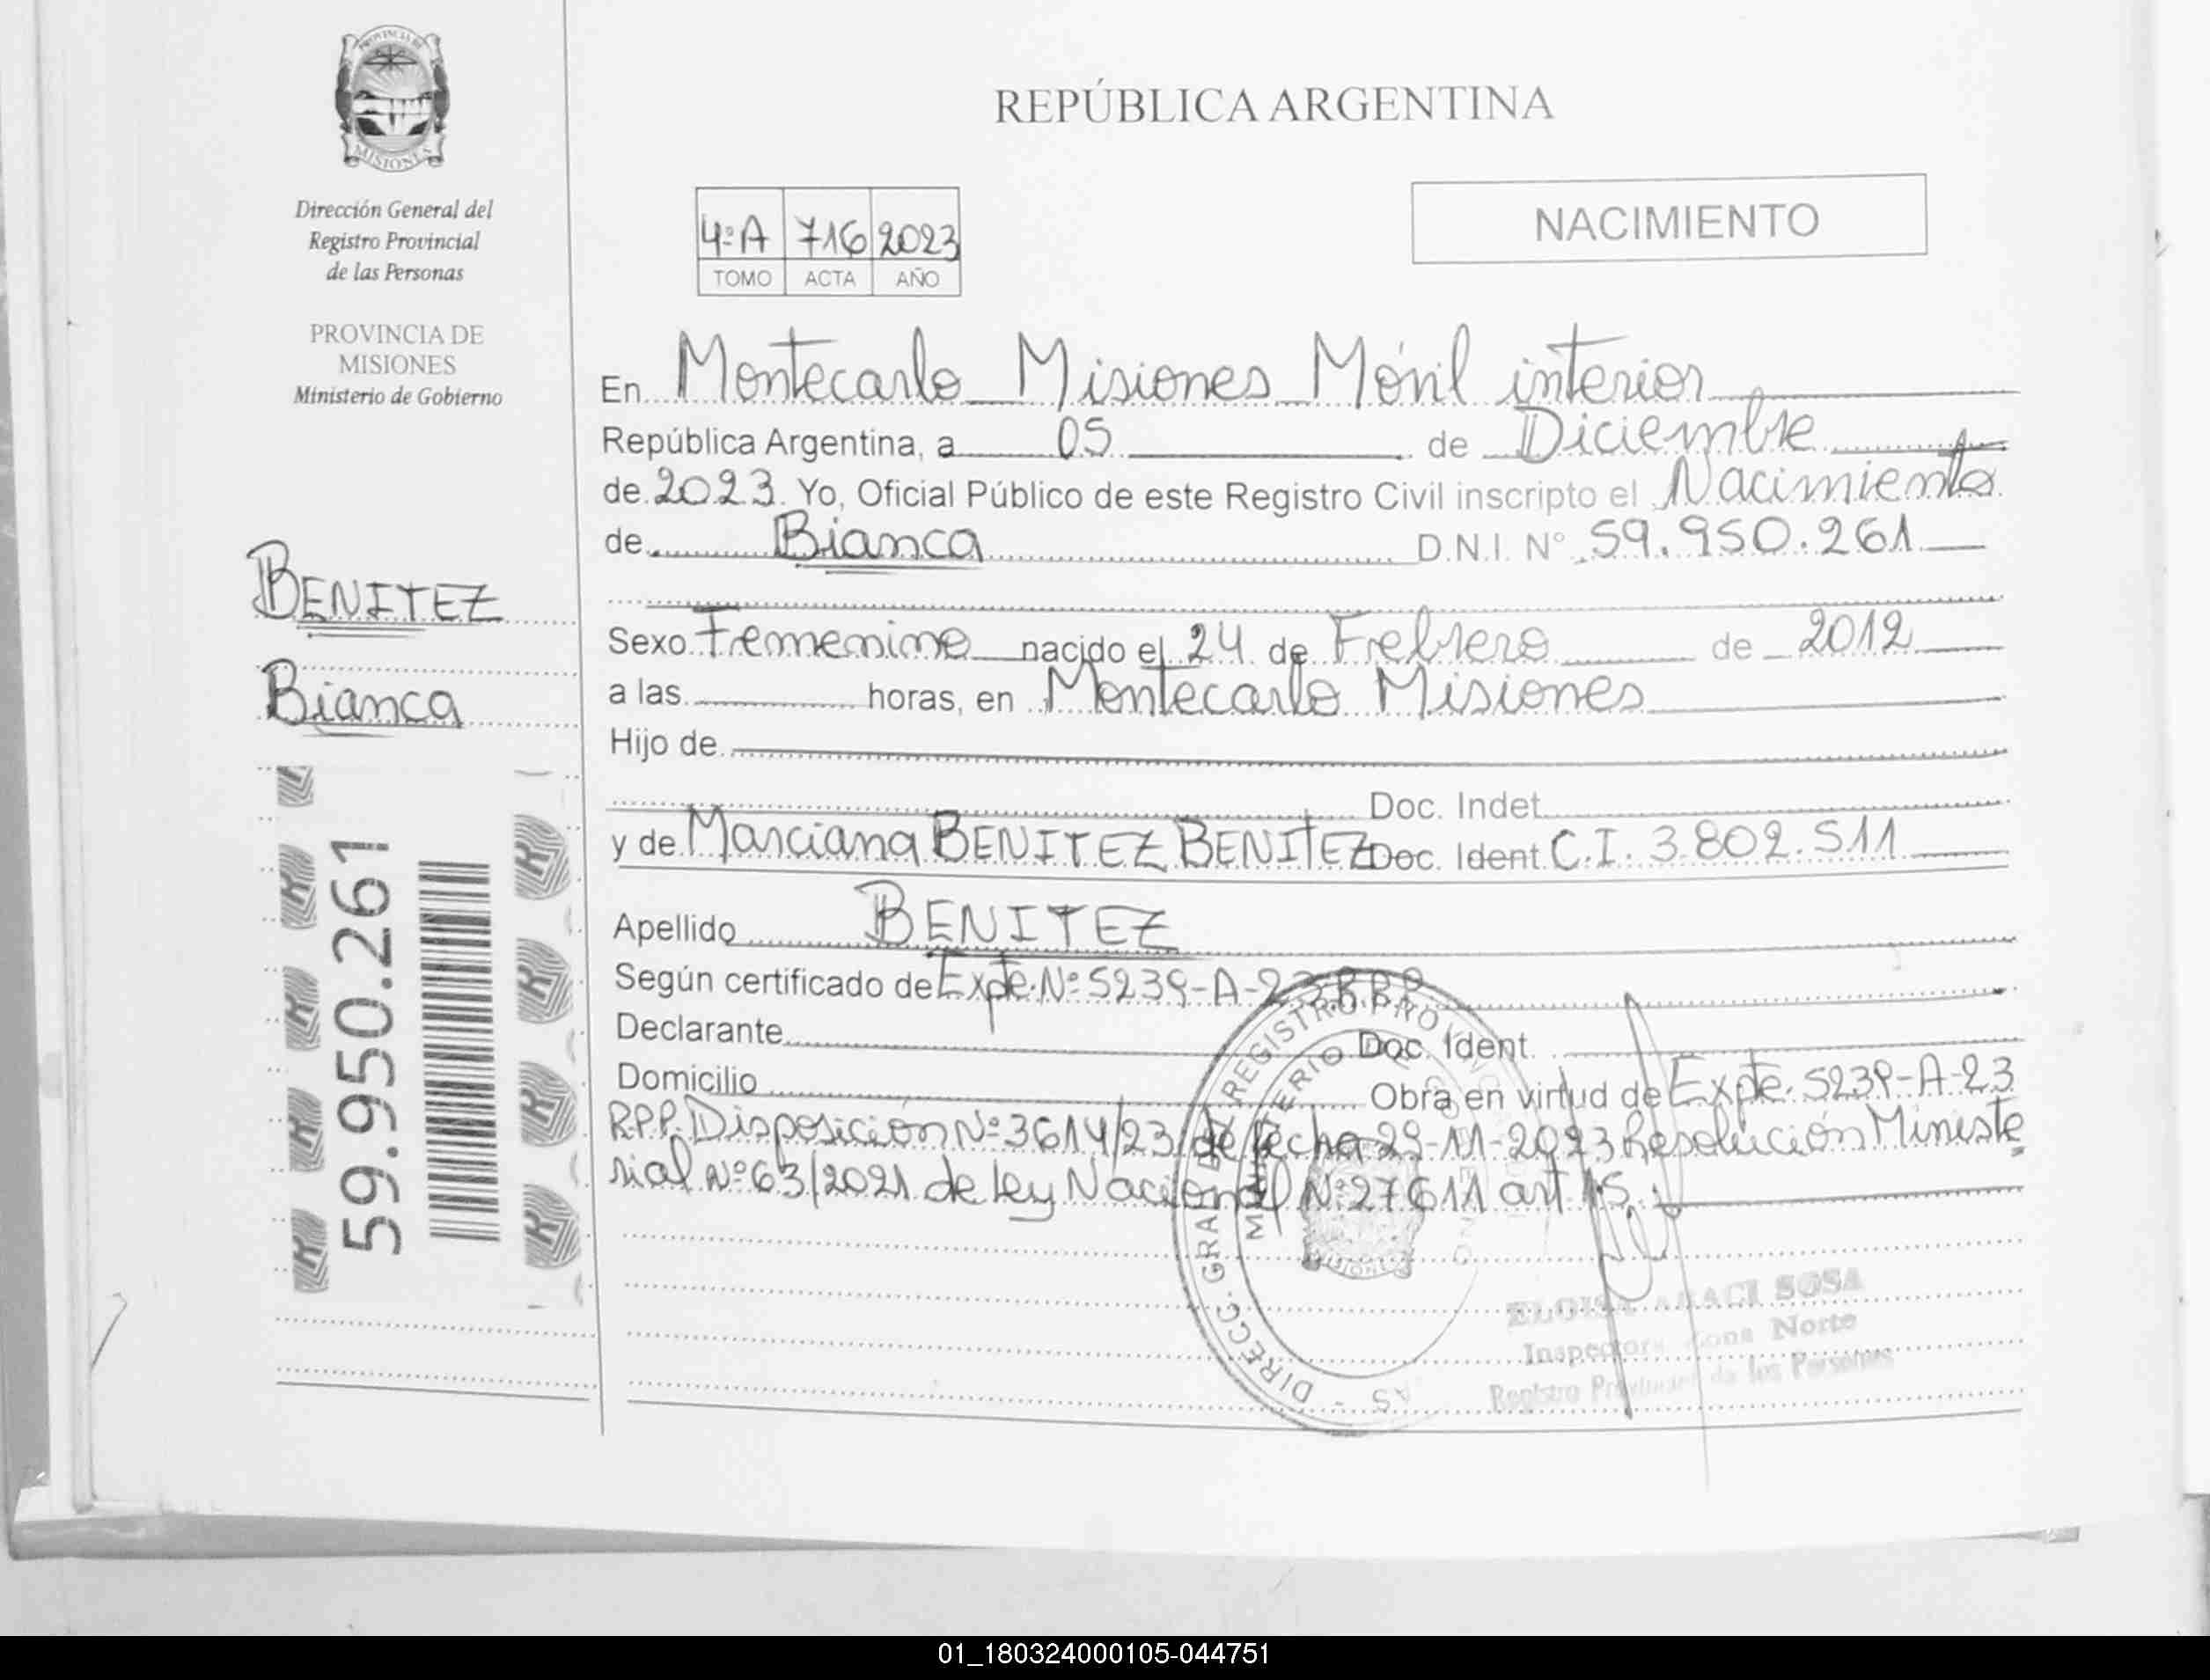 PROVINCIA DE
MISIONES
Dirección General del
Registro Provincial
de las Personas
PROVINCIA DE
MISIONES
Ministerio de Gobierno
BENITEZ
Bianca
59.950.261
REPÚBLICA ARGENTINA
NACIMIENTO
4º A 716 2023
TOMO ACTA AÑO
En Montecarlo Misiones Móvil interior
República Argentina, a 05 de Diciembre
de 2023. Yo, Oficial Público de este Registro Civil inscripto el Nacimiento
de Bianca D.N.I. N° 59.950.261
Sexo Femenino nacido el 24 de Febrero de 2012
a las horas, en Montecarlo Misiones
Hijo de
Doc. Indet.
y de Marciana BENITEZ BENITEZ Doc. Ident. C.I. 3.802.511
Apellido BENITEZ
Según certificado de Expte. Nº 5239-A-23 RPP
Declarante Doc. Ident.
Domicilio Obra en virtud de Expte. 5239-A-23
R.P.P. Disposición Nº 3614/23 de fecha 29-11-2023 Resolución Ministe
rial Nº 63/2021 de ley Nacional Nº 27611 art 15.
DIRECC. GRAL. REGISTRO
MINISTERIO
MISIONES
ELOISA ARACI SOSA
Inspectora Zona Norte
Registro Provincial de las Personas
01_180324000105-044751